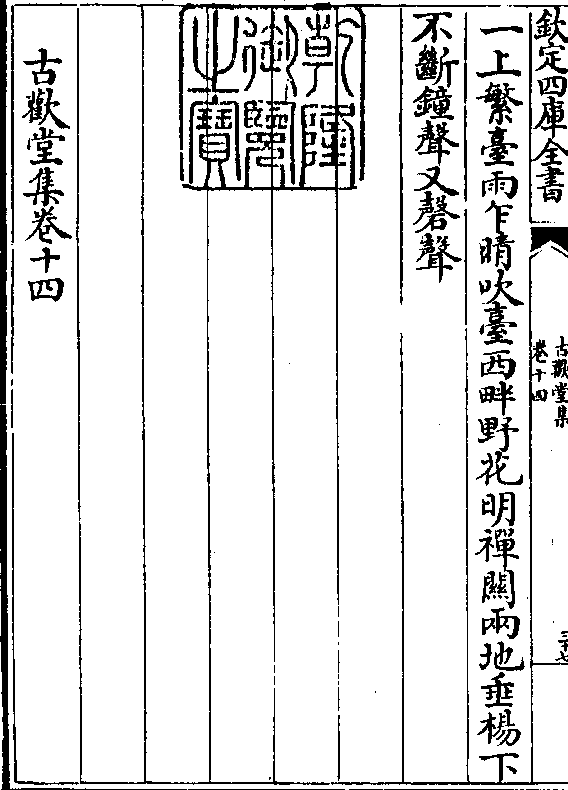 欽定四庫全書
古歡堂集
卷十四
一上繁臺雨乍晴吹臺西畔野花明禪關兩地垂楊下
不斷鐘聲又磬聲
乾隆
御覽
之寶
古歡堂集卷十四